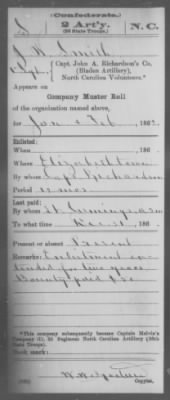 (Confederate.)
S 2 Art'y. N. C.
(36 State Troops.)
J. W. Smith
Capt. John A. Richardson's Co.
(Bladen Artillery),
North Carolina Volunteers.*
Appears on
Company Muster Roll
of the organization named above,
for Jan & Feb, 186
Enlisted:
When , 186 .
Where Elizabethtown
By whom Capt Richardson
Period 12 mos.
Last paid:
By whom
To what time Dec 31, 186 .
Present or absent Present
Remarks: Enlistment ex-
tended for two years
Bounty paid $50
*This company subsequently became Captain Melvin's
Company (I), 36 Regiment North Carolina Artillery (36th
State Troops).
Book mark:
Copyist.